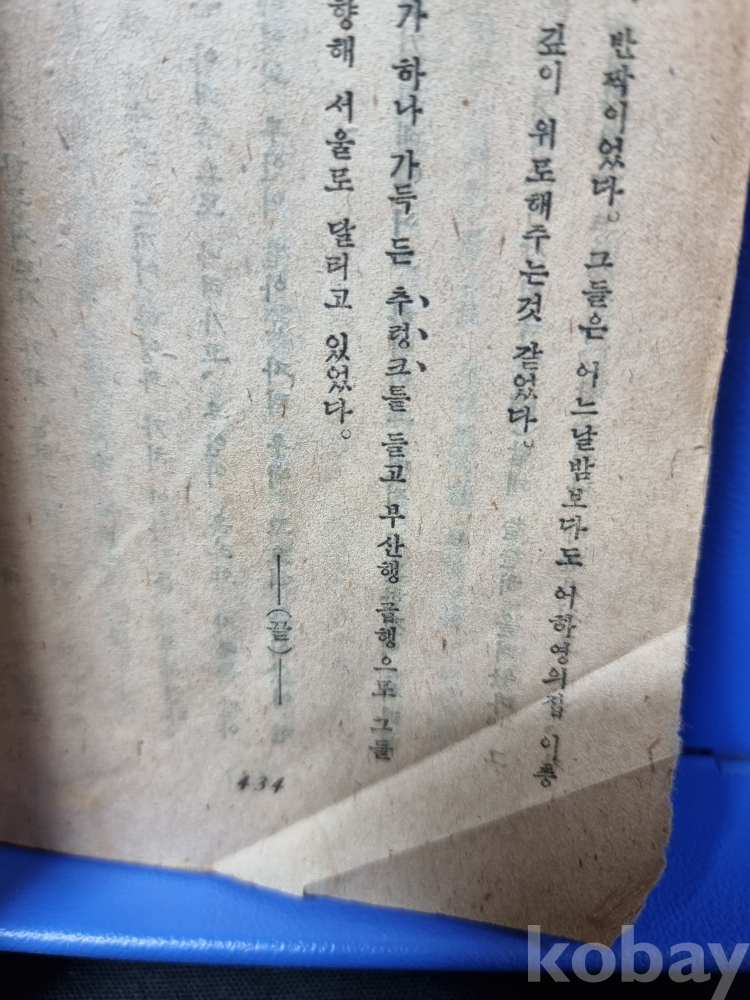 반짝이었다。 그들은 어느날밤보다도 어하영의집 이층
깊이 위로해주는것 같았다。
가 하나 가득 든 추렁크를 들고 부산행 급행으로 그들
향해 서울로 달리고 있었다。
——(끝)——
434
kobay